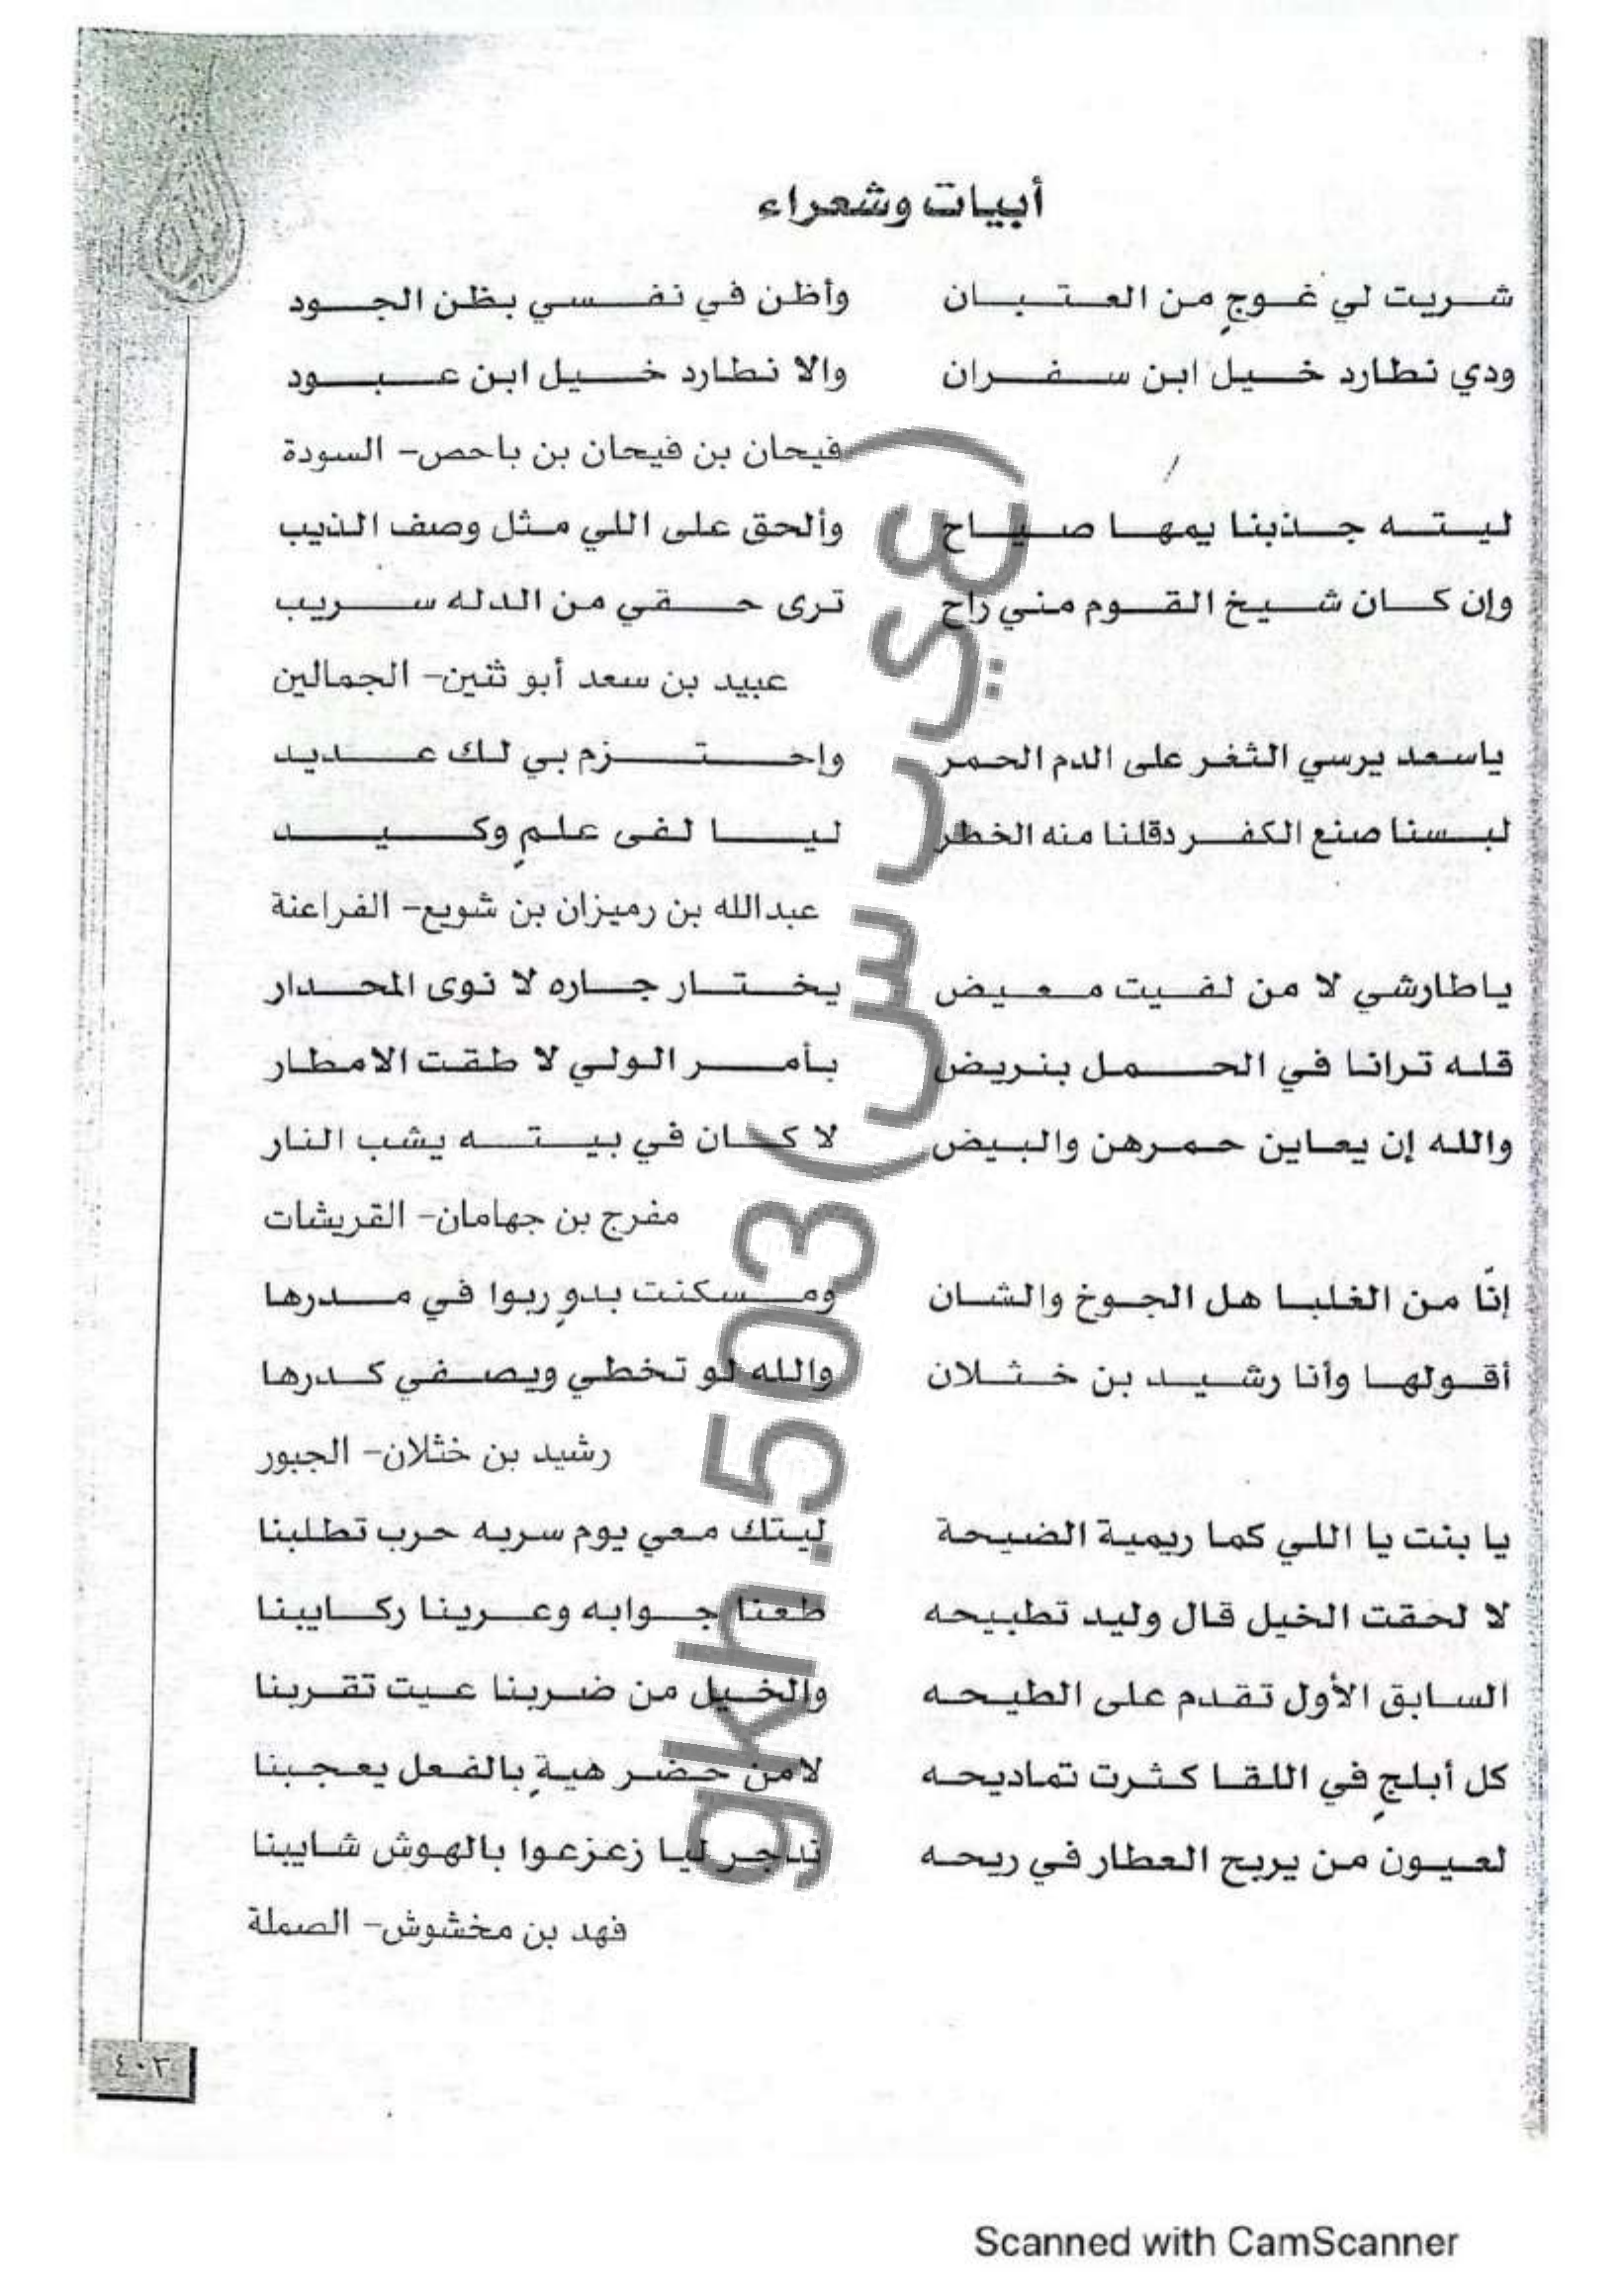 أبيات وشعراء
شريت لي غوجٍ من العتبان وأظن في نفسي بظن الجود
ودي نطارد خيل ابن سفران والا نطارد خيل ابن عبود
فيحان بن فيحان بن باحص- السودة
ليته جذبنا يمها صياح وألحق على اللي مثل وصف الذيب
وإن كان شيخ القوم مني راح ترى حقي من الدله سريب
عبيد بن سعد أبو ثنين- الجمالين
ياسعد يرسي الثغر على الدم الحمر واحتزم بي لك عديد
لبسنا صنع الكفر دقلنا منه الخطر ليا لفى علمٍ وكيد
عبدالله بن رميزان بن شويع- الفراعنة
ياطارشي لا من لفيت معيض يختار جاره لا نوى المحدار
قله ترانا في الحمل بنريض بأمر الولي لا طقت الامطار
والله إن يعاين حمرهن والبيض لا كان في بيته يشب النار
مفرج بن جهامان- القريشات
إنّا من الغلبا هل الجوخ والشان ومسكنت بدوٍ ربوا في مدرها
أقولها وأنا رشيد بن خثلان والله لو تخطي ويصفي كدرها
رشيد بن خثلان- الجبور
يا بنت يا اللي كما ريمية الضيحة ليتك معي يوم سربه حرب تطلبنا
لا لحقت الخيل قال وليد تطبيحه طعنا جوابه وعرينا ركايبنا
السابق الأول تقدم على الطيحه والخيل من ضربنا عيت تقربنا
كل أبلجٍ في اللقا كثرت تماديحه لامن حضر هيةٍ بالفعل يعجبنا
لعيون من يربح العطار في ريحه ليا زعزعوا بالهوش شايبنا
فهد بن مخشوش- الصملة
٤٠٣
gkh.503(عيرس)
Scanned with CamScanner